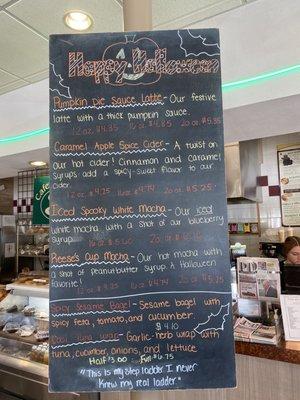 Happy Halloween
Pumpkin pie Sauce Latte - Our festive
latte with a thick pumpkin sauce.
12 oz. $4.85 16 oz $4.85 20 oz $5.35
Caramel Apple Spice Cider - A twist on
our hot cider! Cinnamon and caramel
syrups add a spicy-sweet flavor to our
cider.
12 oz. $4.25 16 oz $4.74 20 oz $5.25
Iced Spooky White Mocha - Our iced
white mocha with a shot of our blueberry
syrup.
16 oz. $5.60 20 oz.
Reese's Cup Mocha - Our hot mocha with
a shot of peanutbutter syrup. A Halloween
favorite.
12 oz. 16 oz. 20 oz.
Spicy Sesame Bagel - Sesame bagel with
spicy feta, tomato, and cucumber.
$4.10
Cool tuna wrap - Garlic-herb wrap with
tuna, cucumber, onions, and lettuce
Half $3.00 Full $6.75
"This is my step ladder. I never
knew my real ladder."